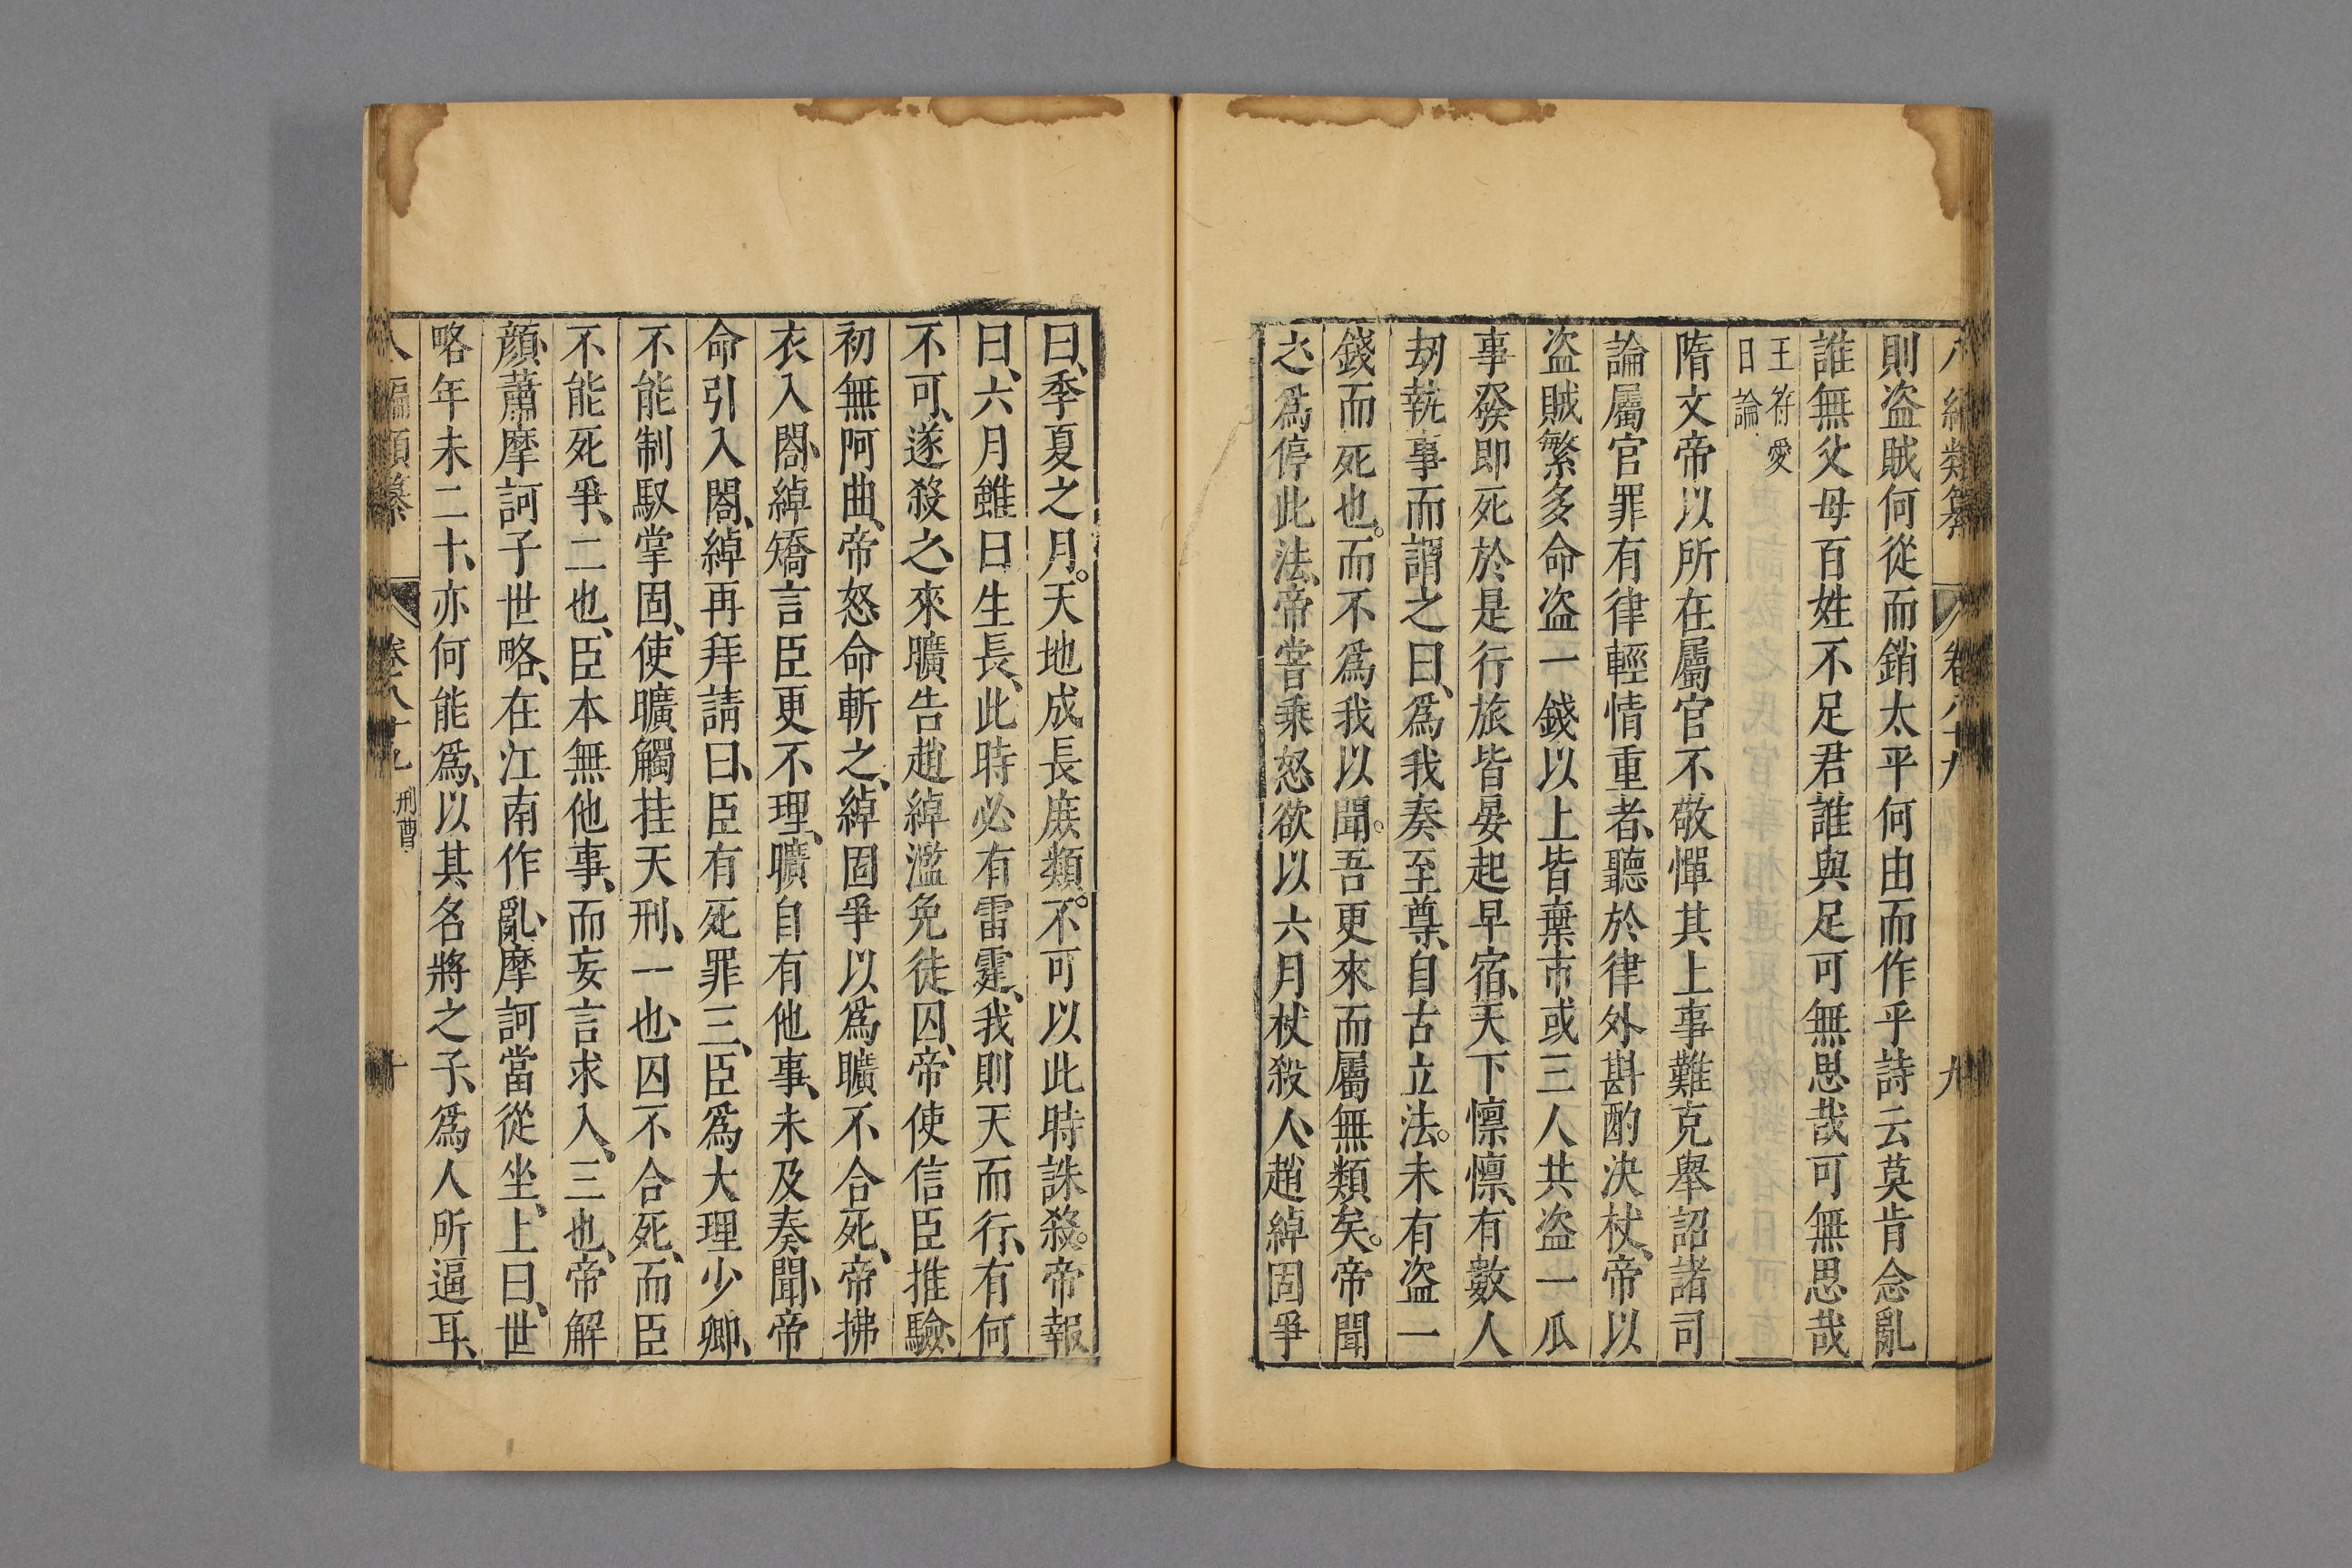 八編類纂 卷八十九 九
則盜賊何從而銷太平何由而作乎詩云莫肯念亂
誰無父母百姓不足君誰與足可無思哉可無思哉
王符愛
日論
隋文帝以所在屬官不敬憚其上事難克舉詔諸司
論屬官罪有律輕情重者、聽於律外斟酌決杖、帝以
盜賊繁多命盜一錢以上皆棄市或三人共盜一瓜
事發即死於是行旅皆晏起早宿、天下懍懍、有數人
刼執事而謂之曰、爲我奏至尊、自古立法。未有盜一
錢而死也。而不爲我以聞。吾更來而屬無類矣。帝聞
之、爲停此法、帝嘗乘怒欲以六月杖殺人、趙綽固爭
曰、季夏之月。天地成長庶類。不可以此時誅殺。帝報
曰、六月雖曰生長、此時必有雷霆、我則天而行、有何
不可、遂殺之、來曠告趙綽濫免徒囚、帝使信臣推驗、
初無阿曲、帝怒命斬之、綽固爭以爲曠不合死、帝拂
衣入閤、綽矯言臣更不理、曠自有他事、未及奏聞、帝
命引入閤、綽再拜請曰、臣有死罪三、臣爲大理少卿、
不能制馭掌固、使曠觸挂天刑、一也、囚不合死、而臣
不能死爭、二也、臣本無他事、而妄言求入、三也、帝解
顏、蕭摩訶子世略、在江南作亂、摩訶當從坐、上曰、世
略年未二十、亦何能爲、以其名將之子、爲人所逼耳、
八編類纂 卷八十九 刑曹 十